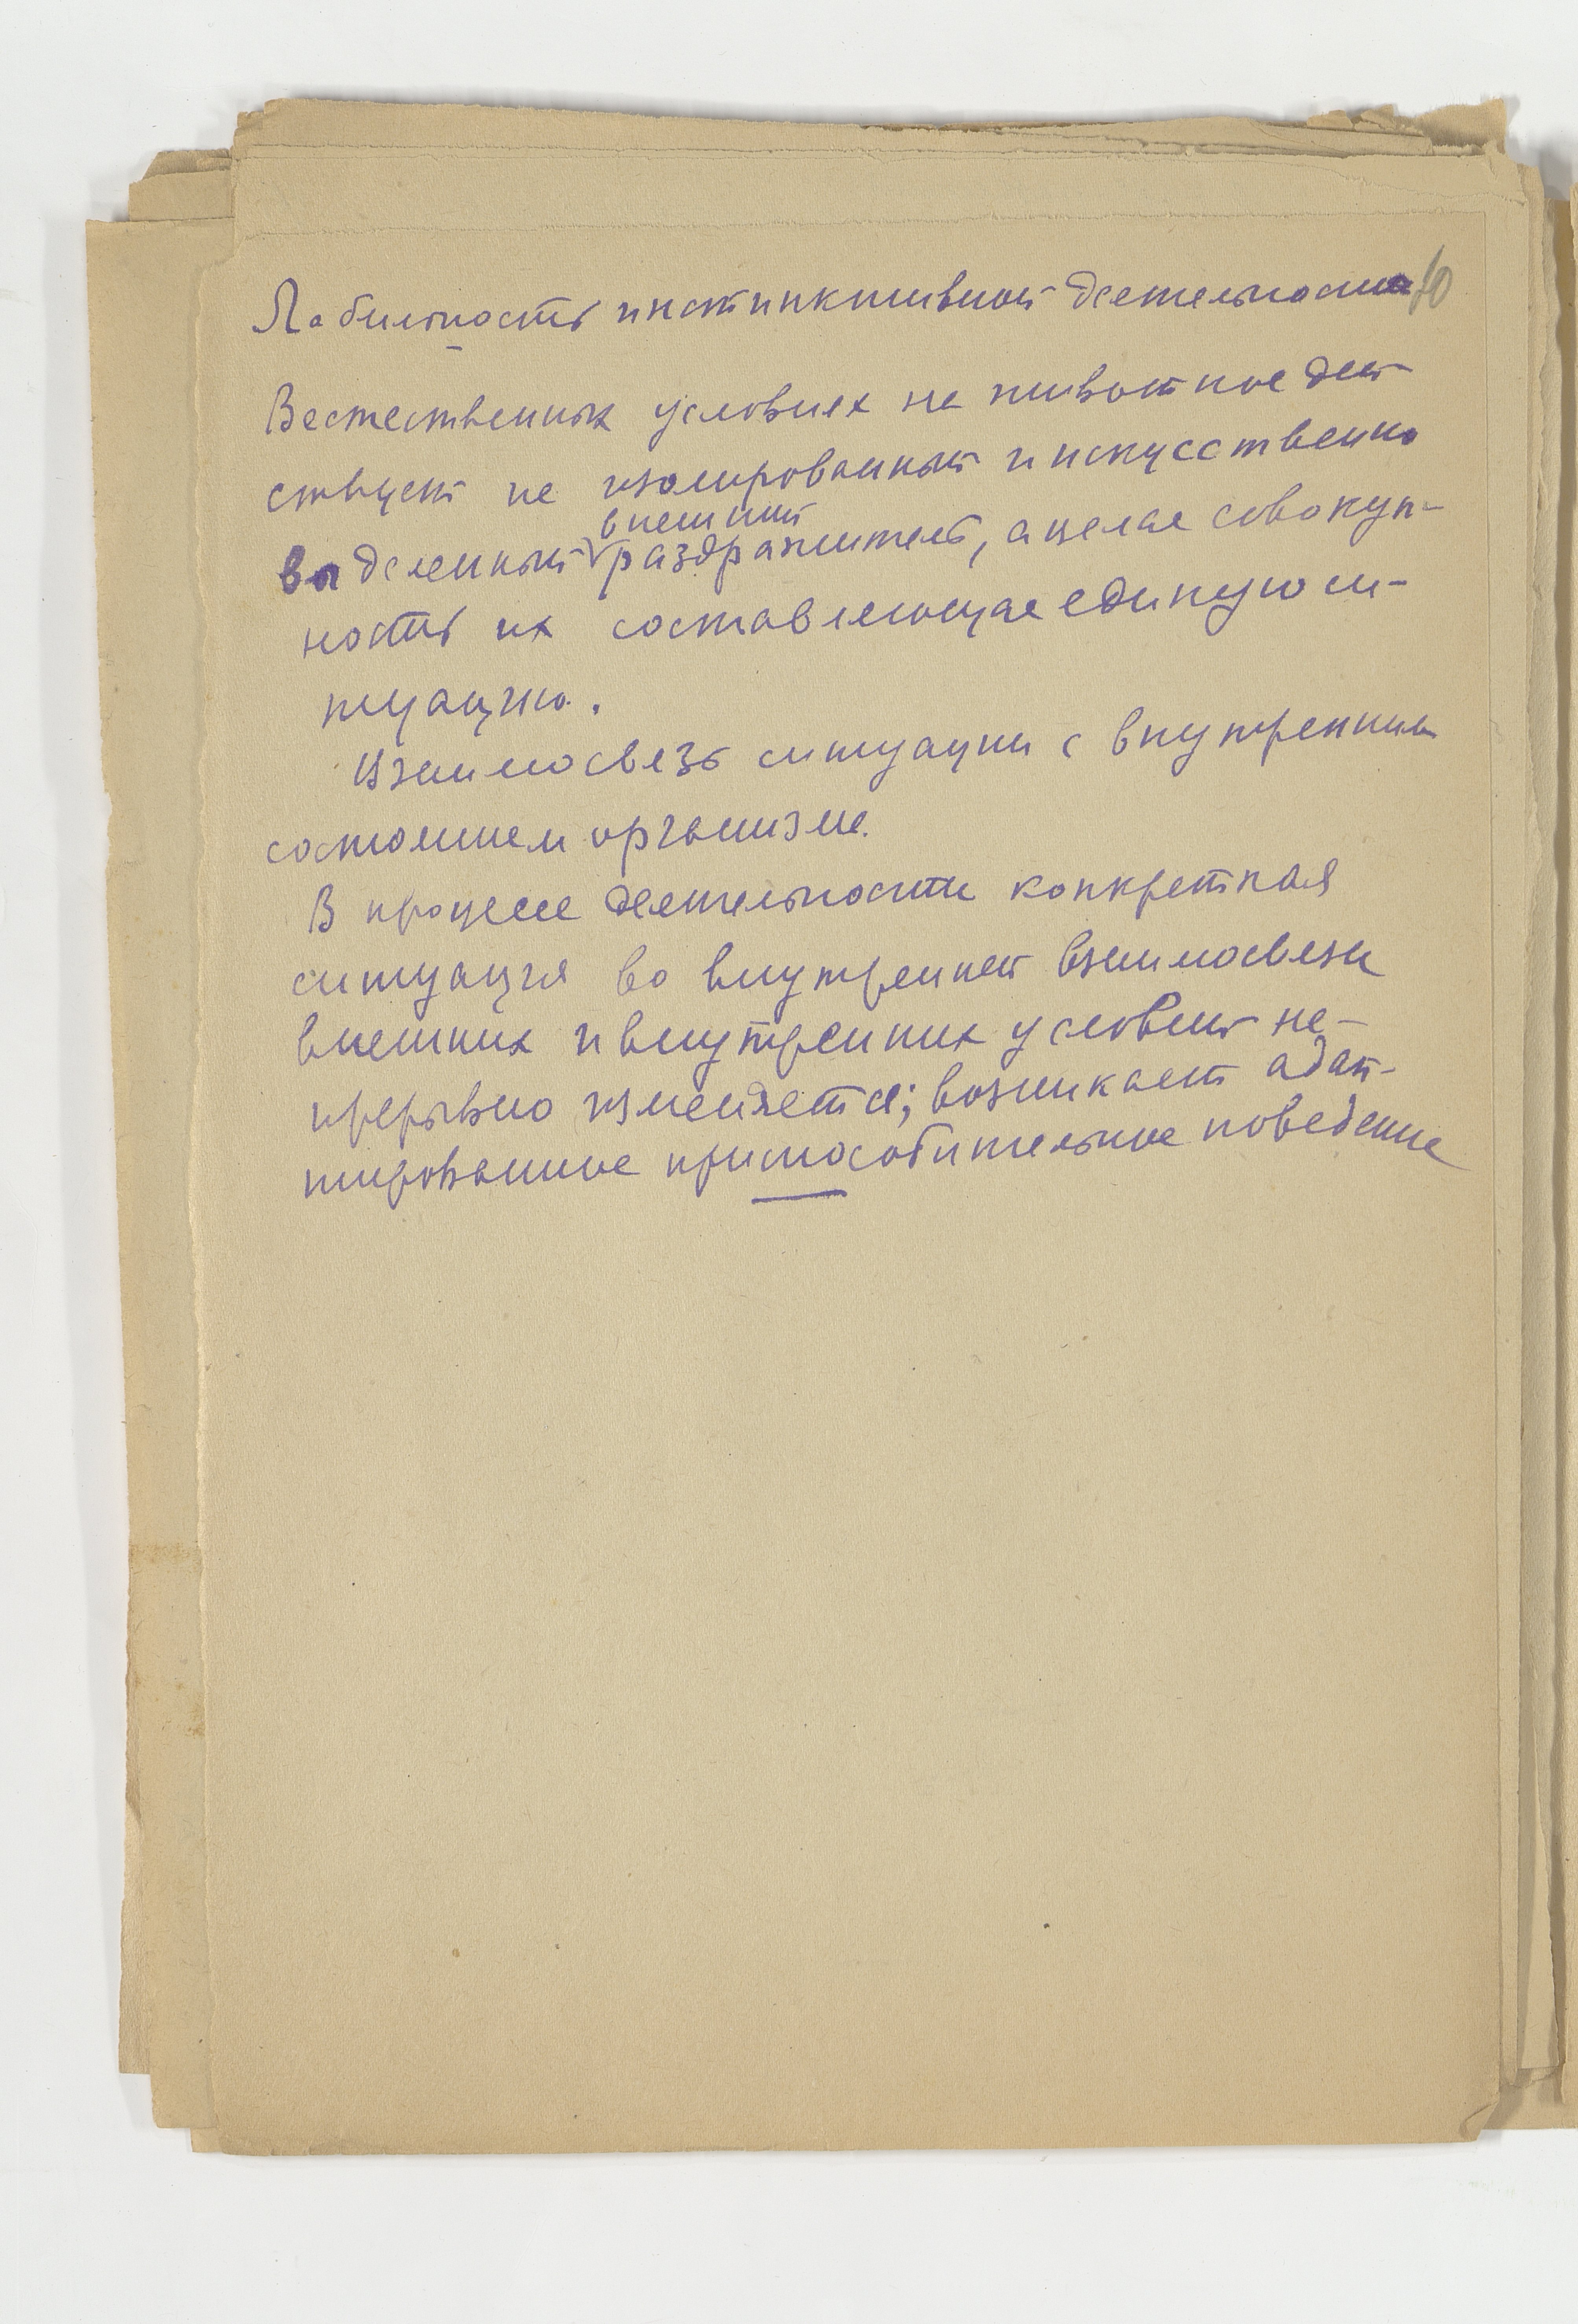 Лабильность инстинктивной деятельности 10
В естественных условиях на животное дей
ствует не изолированный и искусственно
внешний
выделенный раздражитель, а целая совокуп-
ность их составляющая единую си-
туацию.
Взаимосвязь ситуации с внутренним
состоянием организма.
В процессе деятельности конкретная
ситуация во внутренней взаимосвязи
внешних и внутренних условий не-
прерывно изменяется; возникает адап-
тированное приспособительное поведение